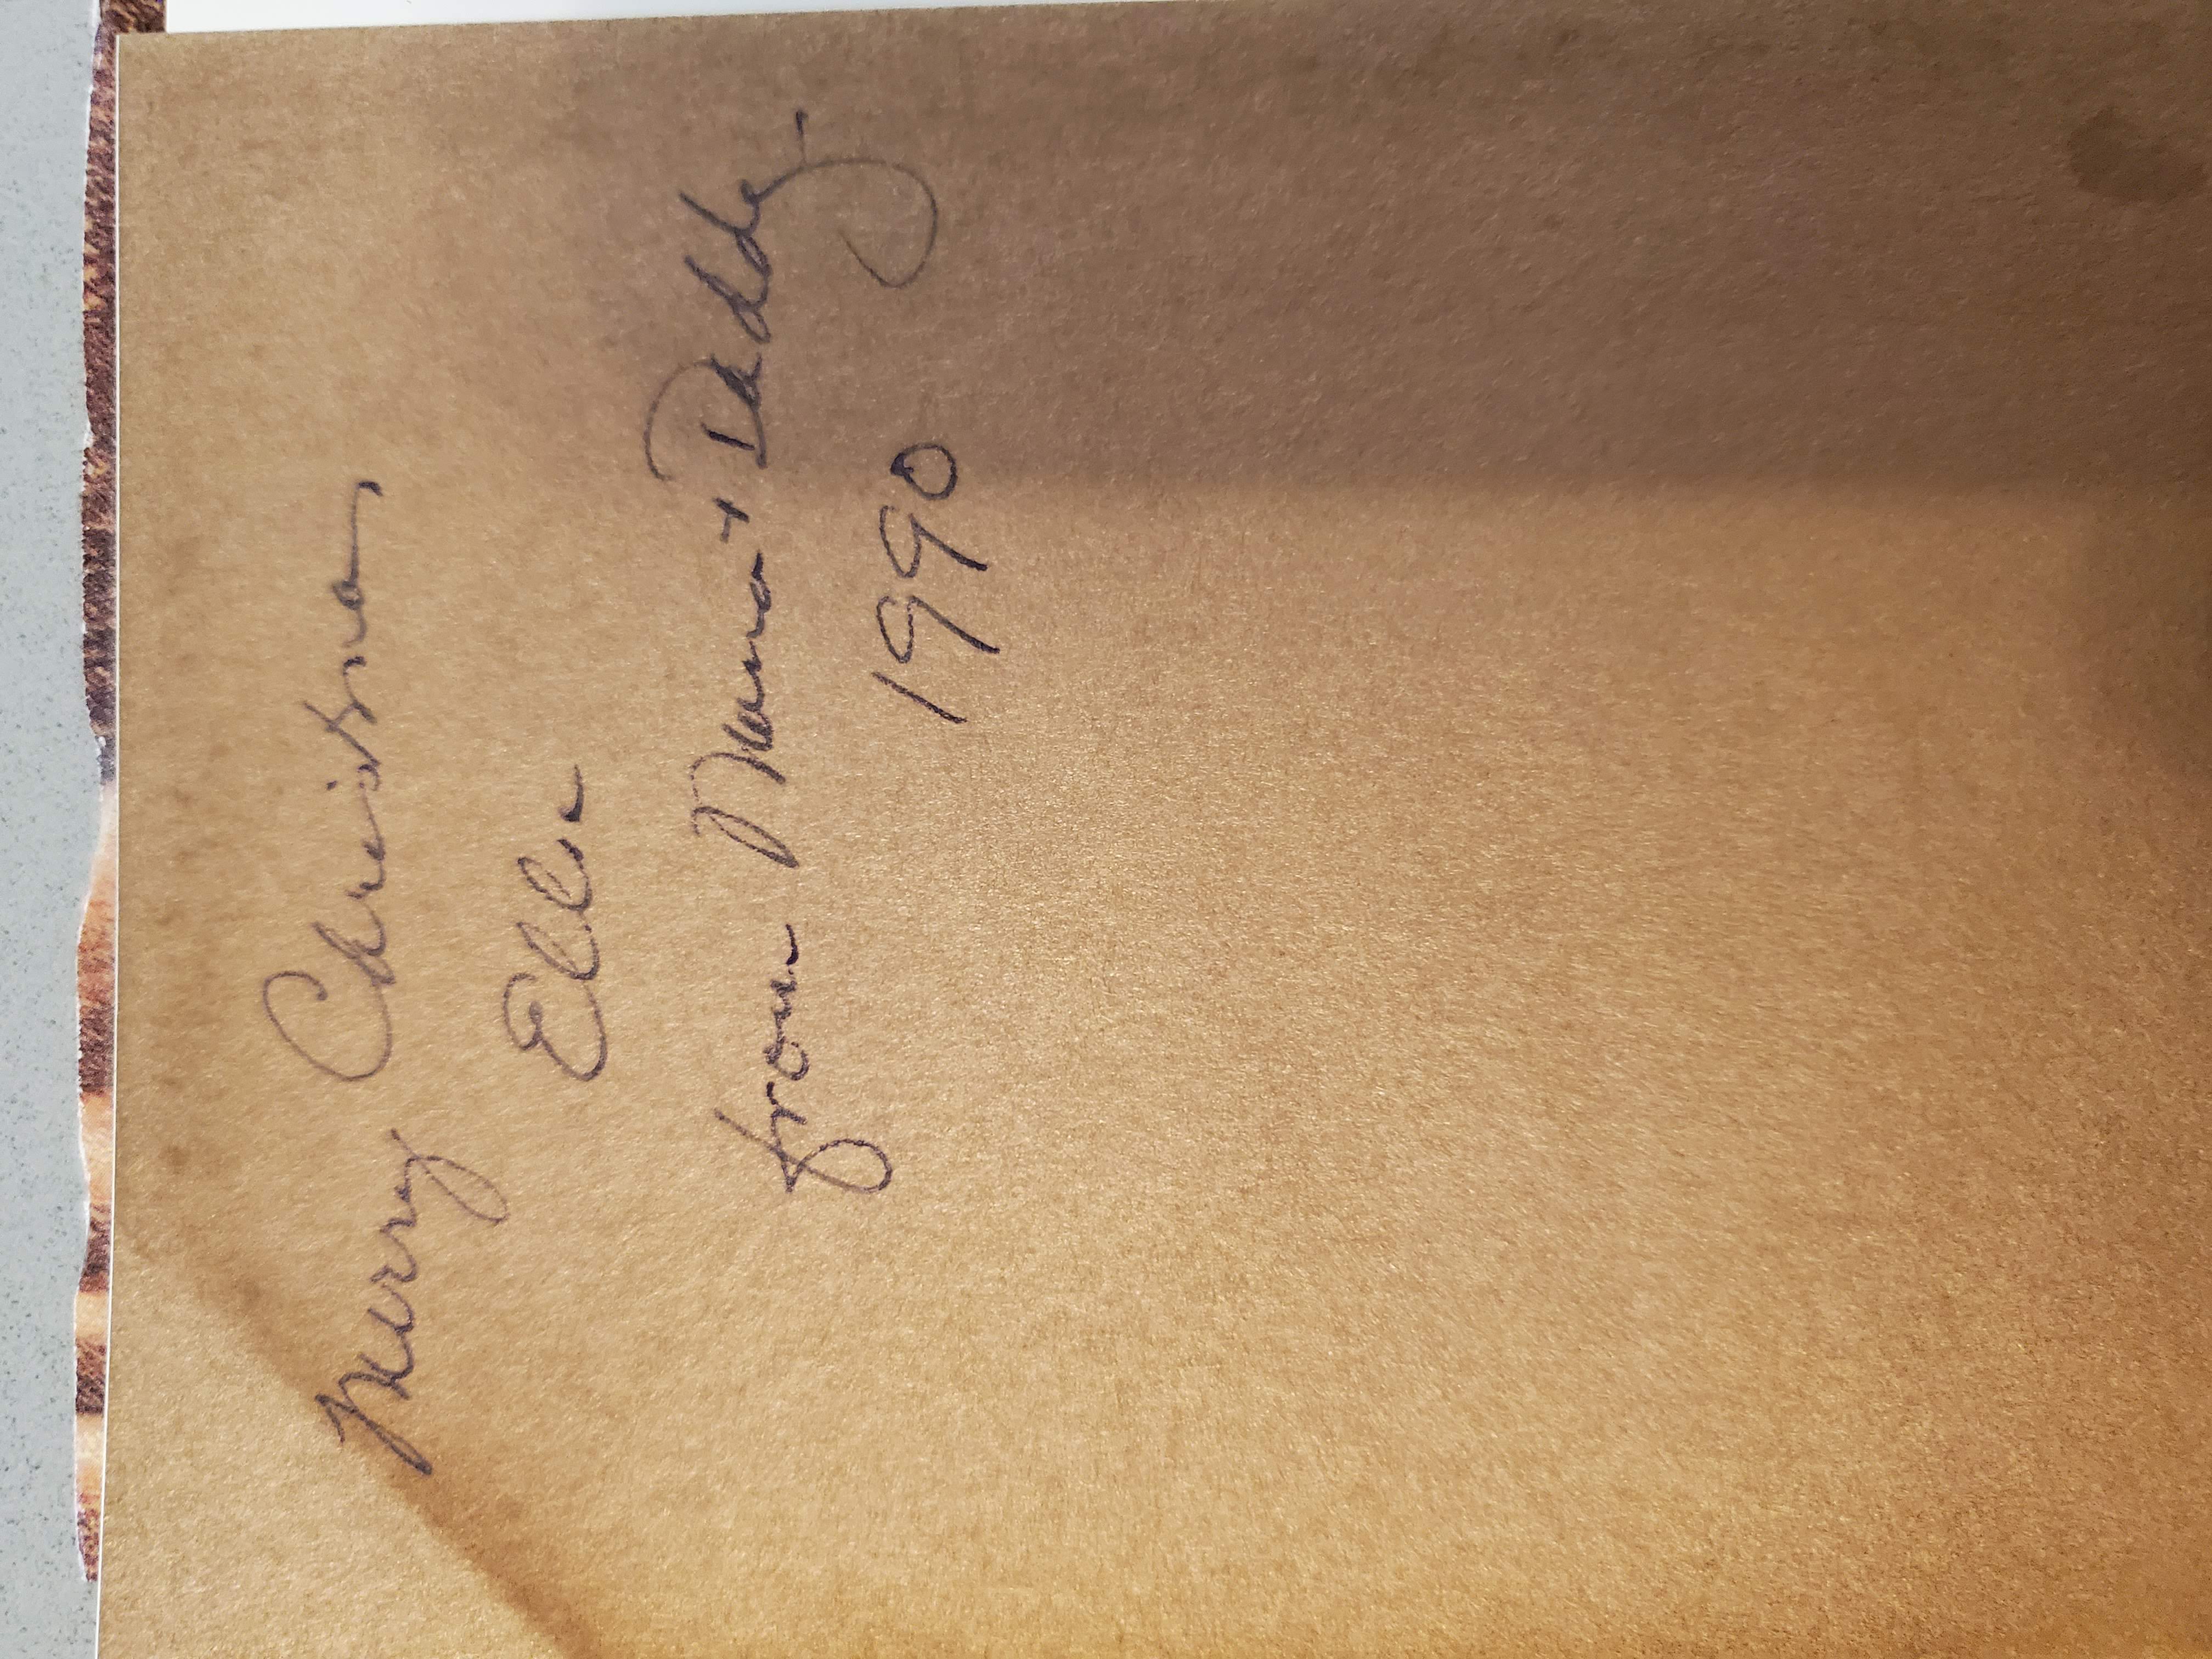 Merry Christmas
Ella
from Mama + Daddy
1990